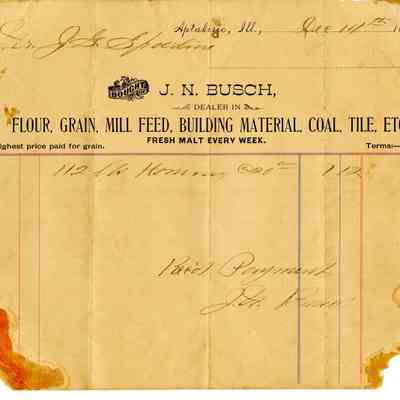 Aptakisic, Ill., Dec 14th 1
Dr. J. G. Spalding
BOUGHT OF
J. N. BUSCH,
DEALER IN
FLOUR, GRAIN, MILL FEED, BUILDING MATERIAL, COAL, TILE, ETC
FRESH MALT EVERY WEEK.
ighest price paid for grain. Terms:—
112 lb Hominy 1 12
Rec'd Payment
J. N. Busch